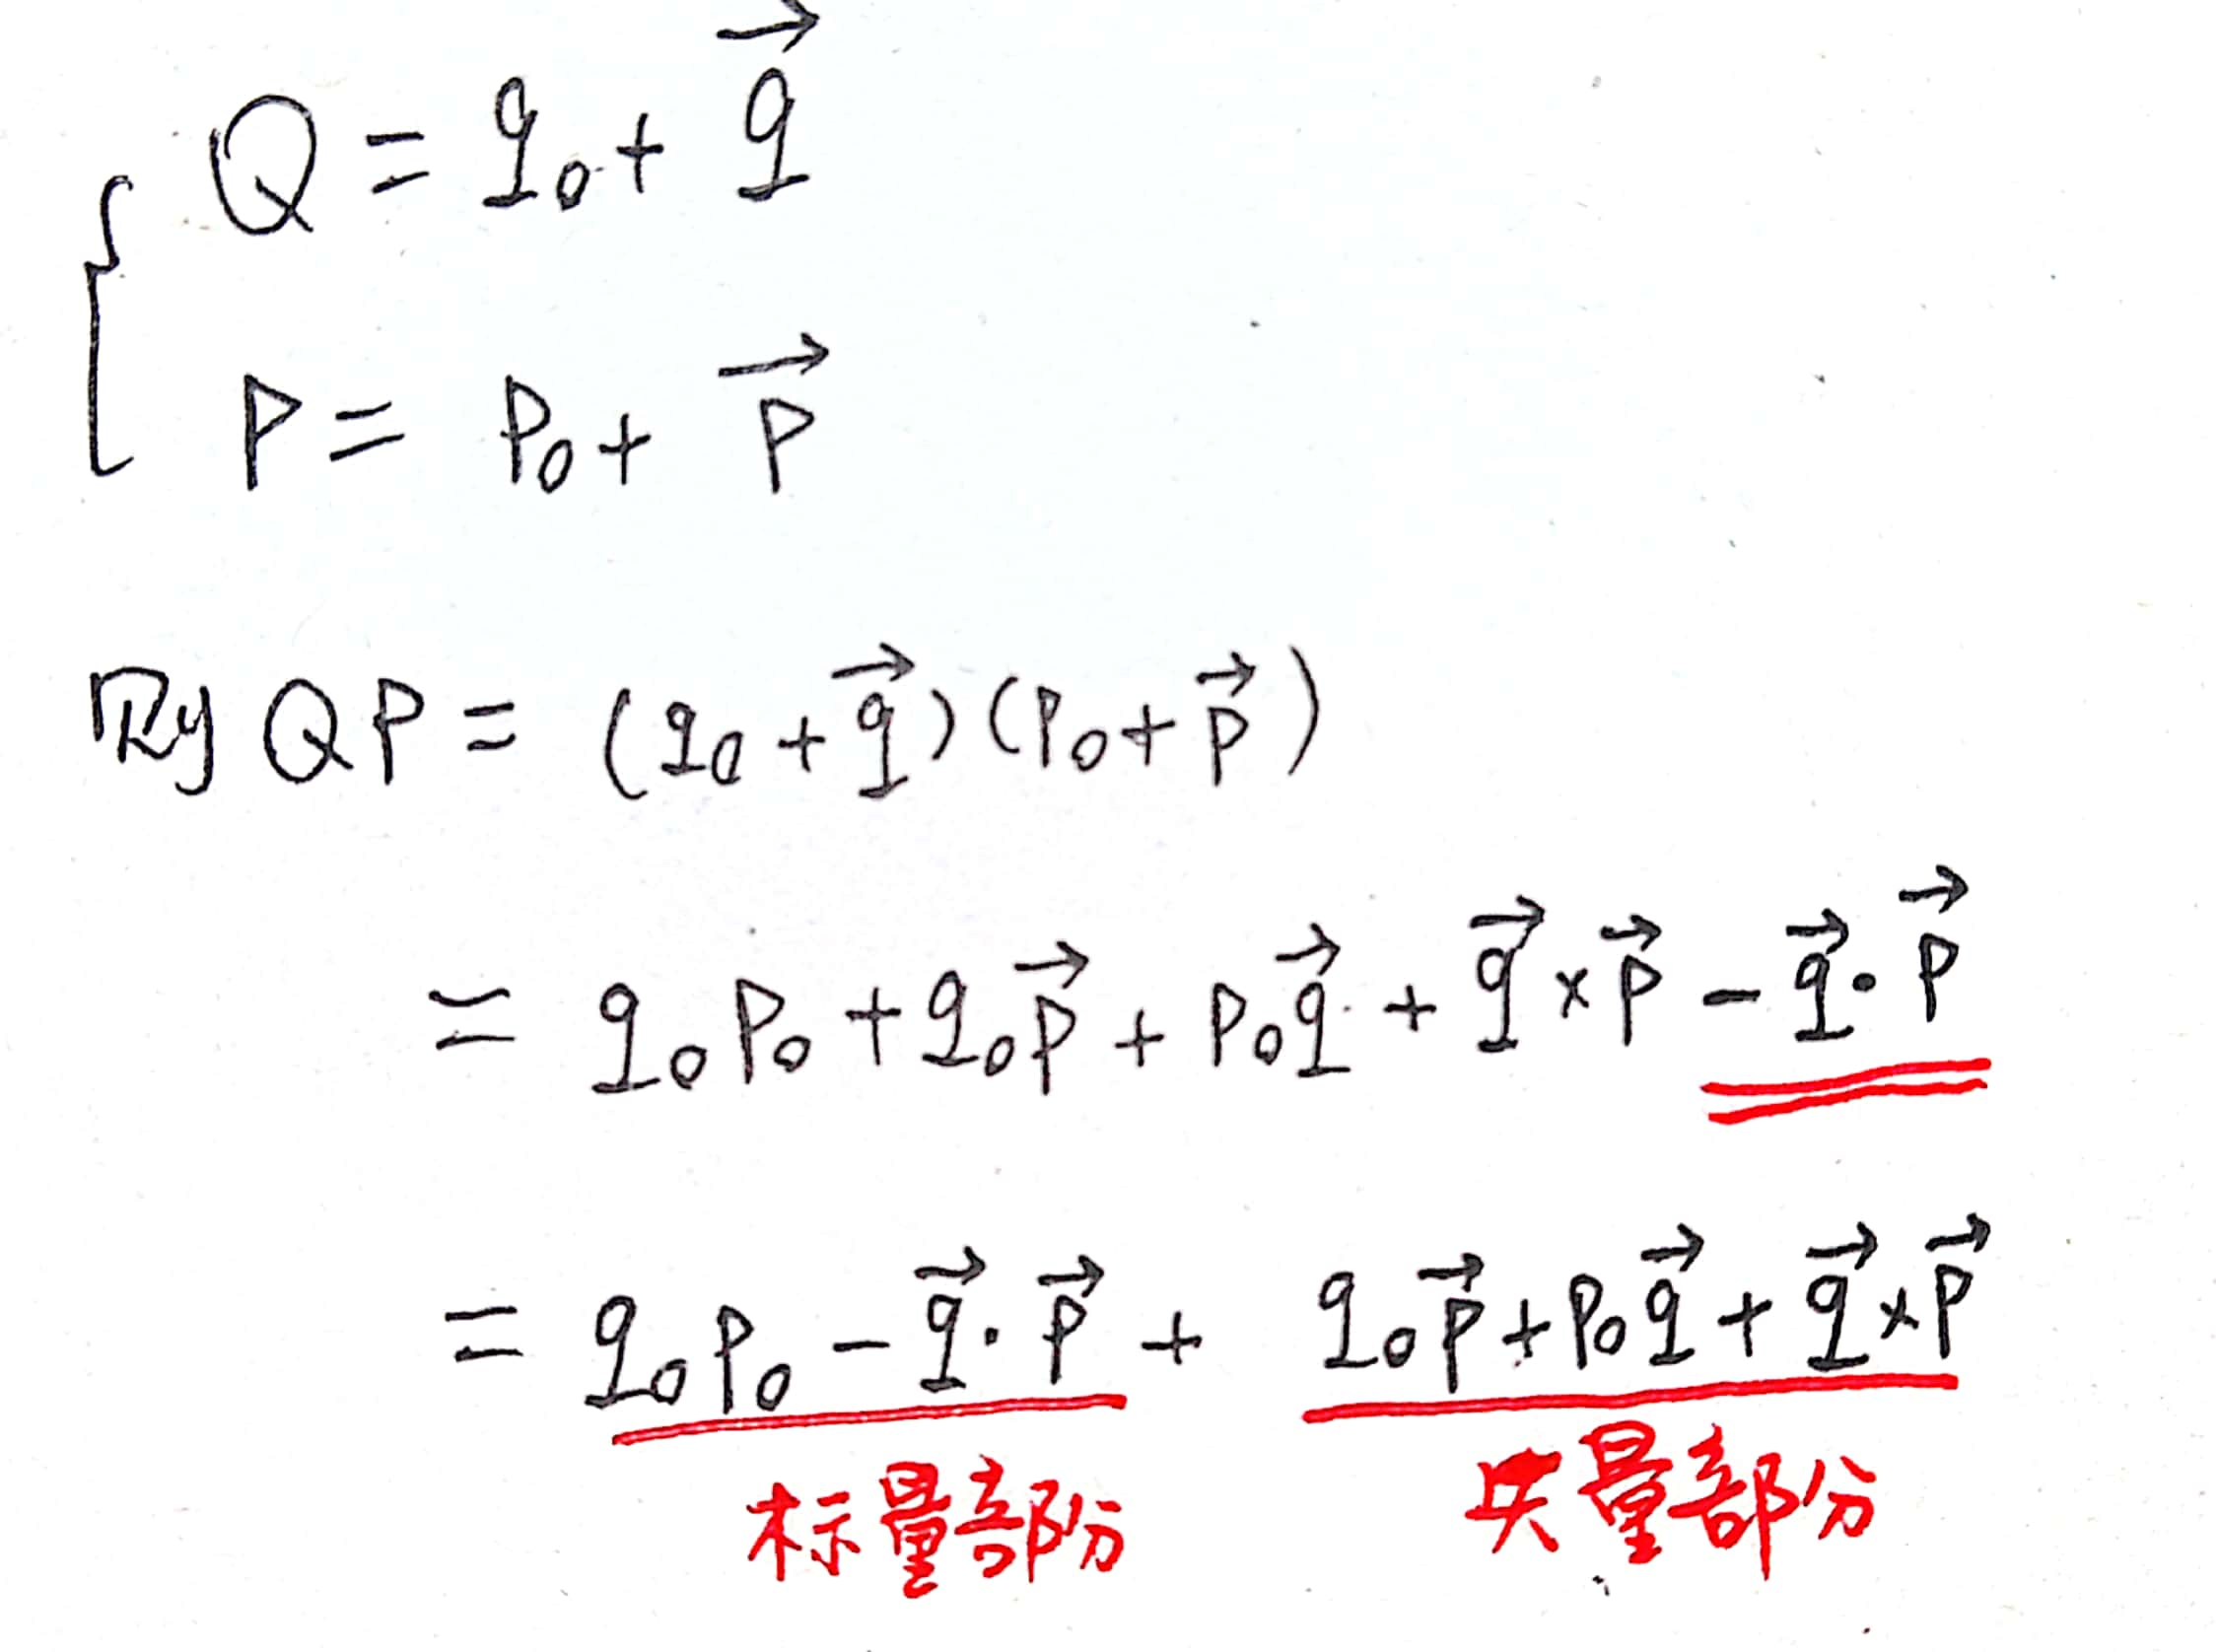 Q = q₀ + q⃗
P = P₀ + P⃗
则 QP = (q₀ + q⃗)(P₀ + P⃗)
= q₀P₀ + q₀P⃗ + P₀q⃗ + q⃗ × P⃗ - q⃗ · P⃗
= q₀P₀ - q⃗ · P⃗ + q₀P⃗ + P₀q⃗ + q⃗ × P⃗
标量部分 矢量部分